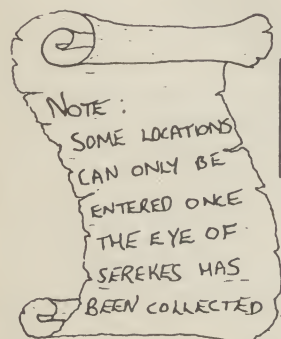 NOTE:
SOME LOCATIONS
CAN ONLY BE
ENTERED ONCE
THE EYE OF
SEREKES HAS
BEEN COLLECTED